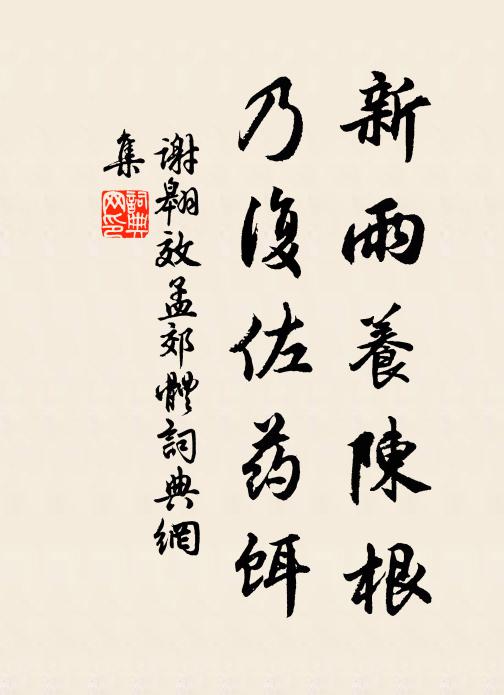 新雨養陳根
乃復佐药餌
謝翱效孟郊體詞典網
集
詞典網印